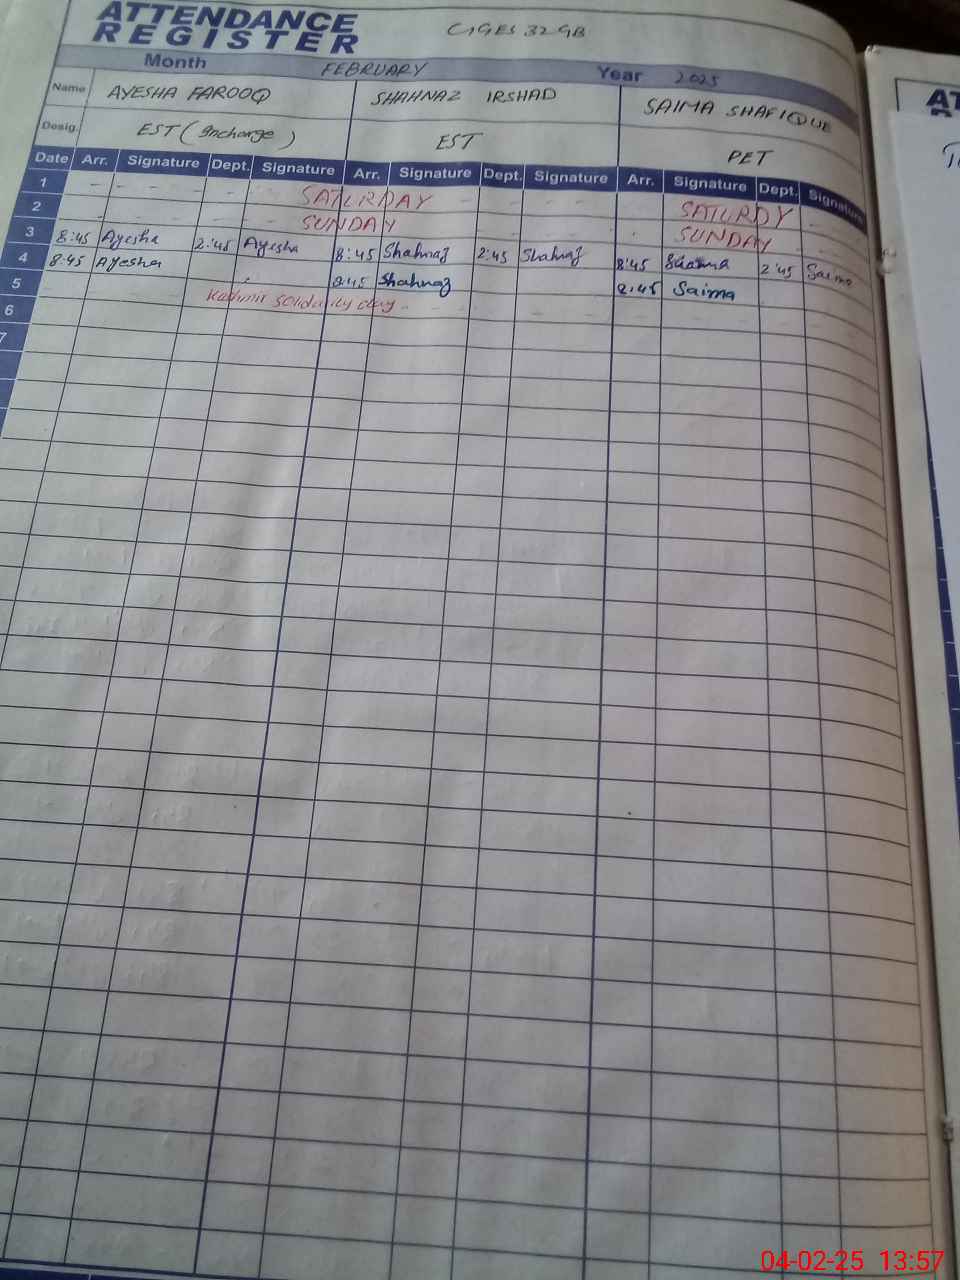 ATTENDANCE
REGISTER
GGES 32GB
Month FEBRUARY Year 2025
Name AYESHA FAROOQ SHAHNAZ IRSHAD SAIMA SHAFIQUE
Desig. EST (Incharge) EST PET
Date Arr. Signature Dept. Signature Arr. Signature Dept. Signature Arr. Signature Dept. Signature
1 SATURDAY SATURDY
2 SUNDAY SUNDAY
3 8:45 Ayesha 2:45 Ayesha 8:45 Shahnaz 2:45 Shahnaz 8:45 Saima 2:45 Saima
4 8:45 Ayesha 8:45 Shahnaz 8:45 Saima
5 Kashmir solidarity day
6
7
AT
04-02-25 13:57